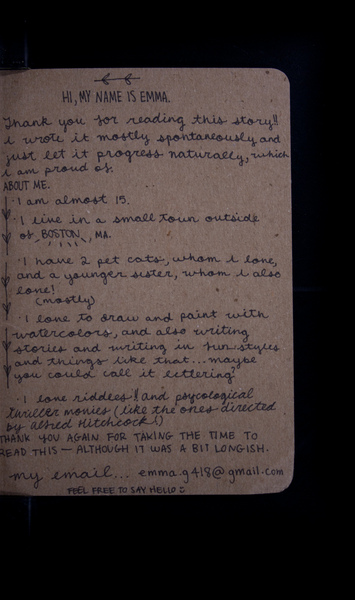 HI, MY NAME IS EMMA.
Thank you for reading this story!!
i wrote it mostly spontaneously and
just let it progress naturally, which
i am proud of.
ABOUT ME.
· I am almost 15.
· I live in a small town outside
of BOSTON, MA.
· I have 2 pet cats, whom i love,
and a younger sister, whom i also
love!
(mostly)
· I love to draw and paint with
watercolors, and also writing
stories and writing in fun styles
and things like that... maybe
you could call it lettering?
· I love riddles!! and psycological
thriller movies (like the ones directed
by Alfred Hitchcock!)
THANK YOU AGAIN FOR TAKING THE TIME TO
READ THIS — ALTHOUGH IT WAS A BIT LONGISH.
my email... emma.g418@gmail.com
FEEL FREE TO SAY HELLO :)